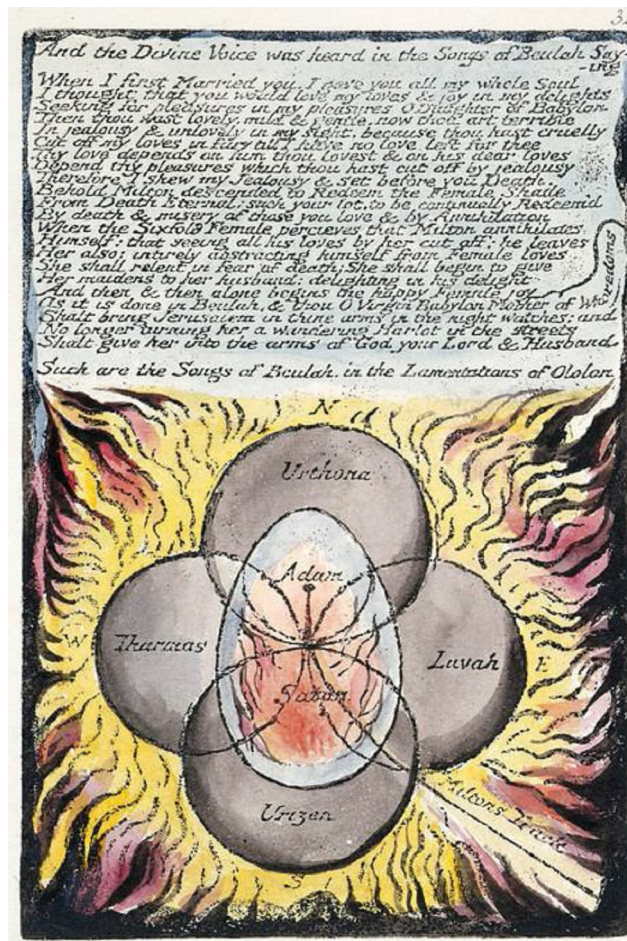 3
And the Divine Voice was heard in the Songs of Beulah Say-
-ing
When I first Married you, I gave you all my whole Soul
I thought that you would love my loves & joy in my delights
Seeking for pleasures in my pleasures O Daughter of Babylon
Then thou wast lovely, mild & gentle, now thou art terrible
In jealousy & unlovely in my sight, because thou hast cruelly
Cut off my loves in fury till I have no love left for thee
Thy love depends on him thou lovest & on his dear loves
Depend thy pleasures which thou hast cut off by jealousy
Therefore I shew my Jealousy & set before you Death.
Behold Milton descended to Redeem the Female Shade
From Death Eternal; such your lot, to be continually Redeem'd
By death & misery of those you love & by Annihilation
When the Sixfold Female percieves that Milton annihilates
Himself: that seeing all his loves by her cut off: he leaves
Her also: intirely abstracting himself from Female loves
She shall relent in fear of death; She shall begin to give
Her maidens to her husband: delighting in his delight
And then & then alone begins the happy Female joy
As it is done in Beulah, & thou O Virgin Babylon Mother of Whoredoms
Shalt bring Jerusalem in thine arms in the night watches; and
No longer turning her a wandering Harlot in the streets
Shalt give her into the arms of God your Lord & Husband.
Such are the Songs of Beulah in the Lamentations of Ololon
N
Urthona
Adam
W
Tharmas
Luvah
E
Satan
Miltons Track
Urizen
S